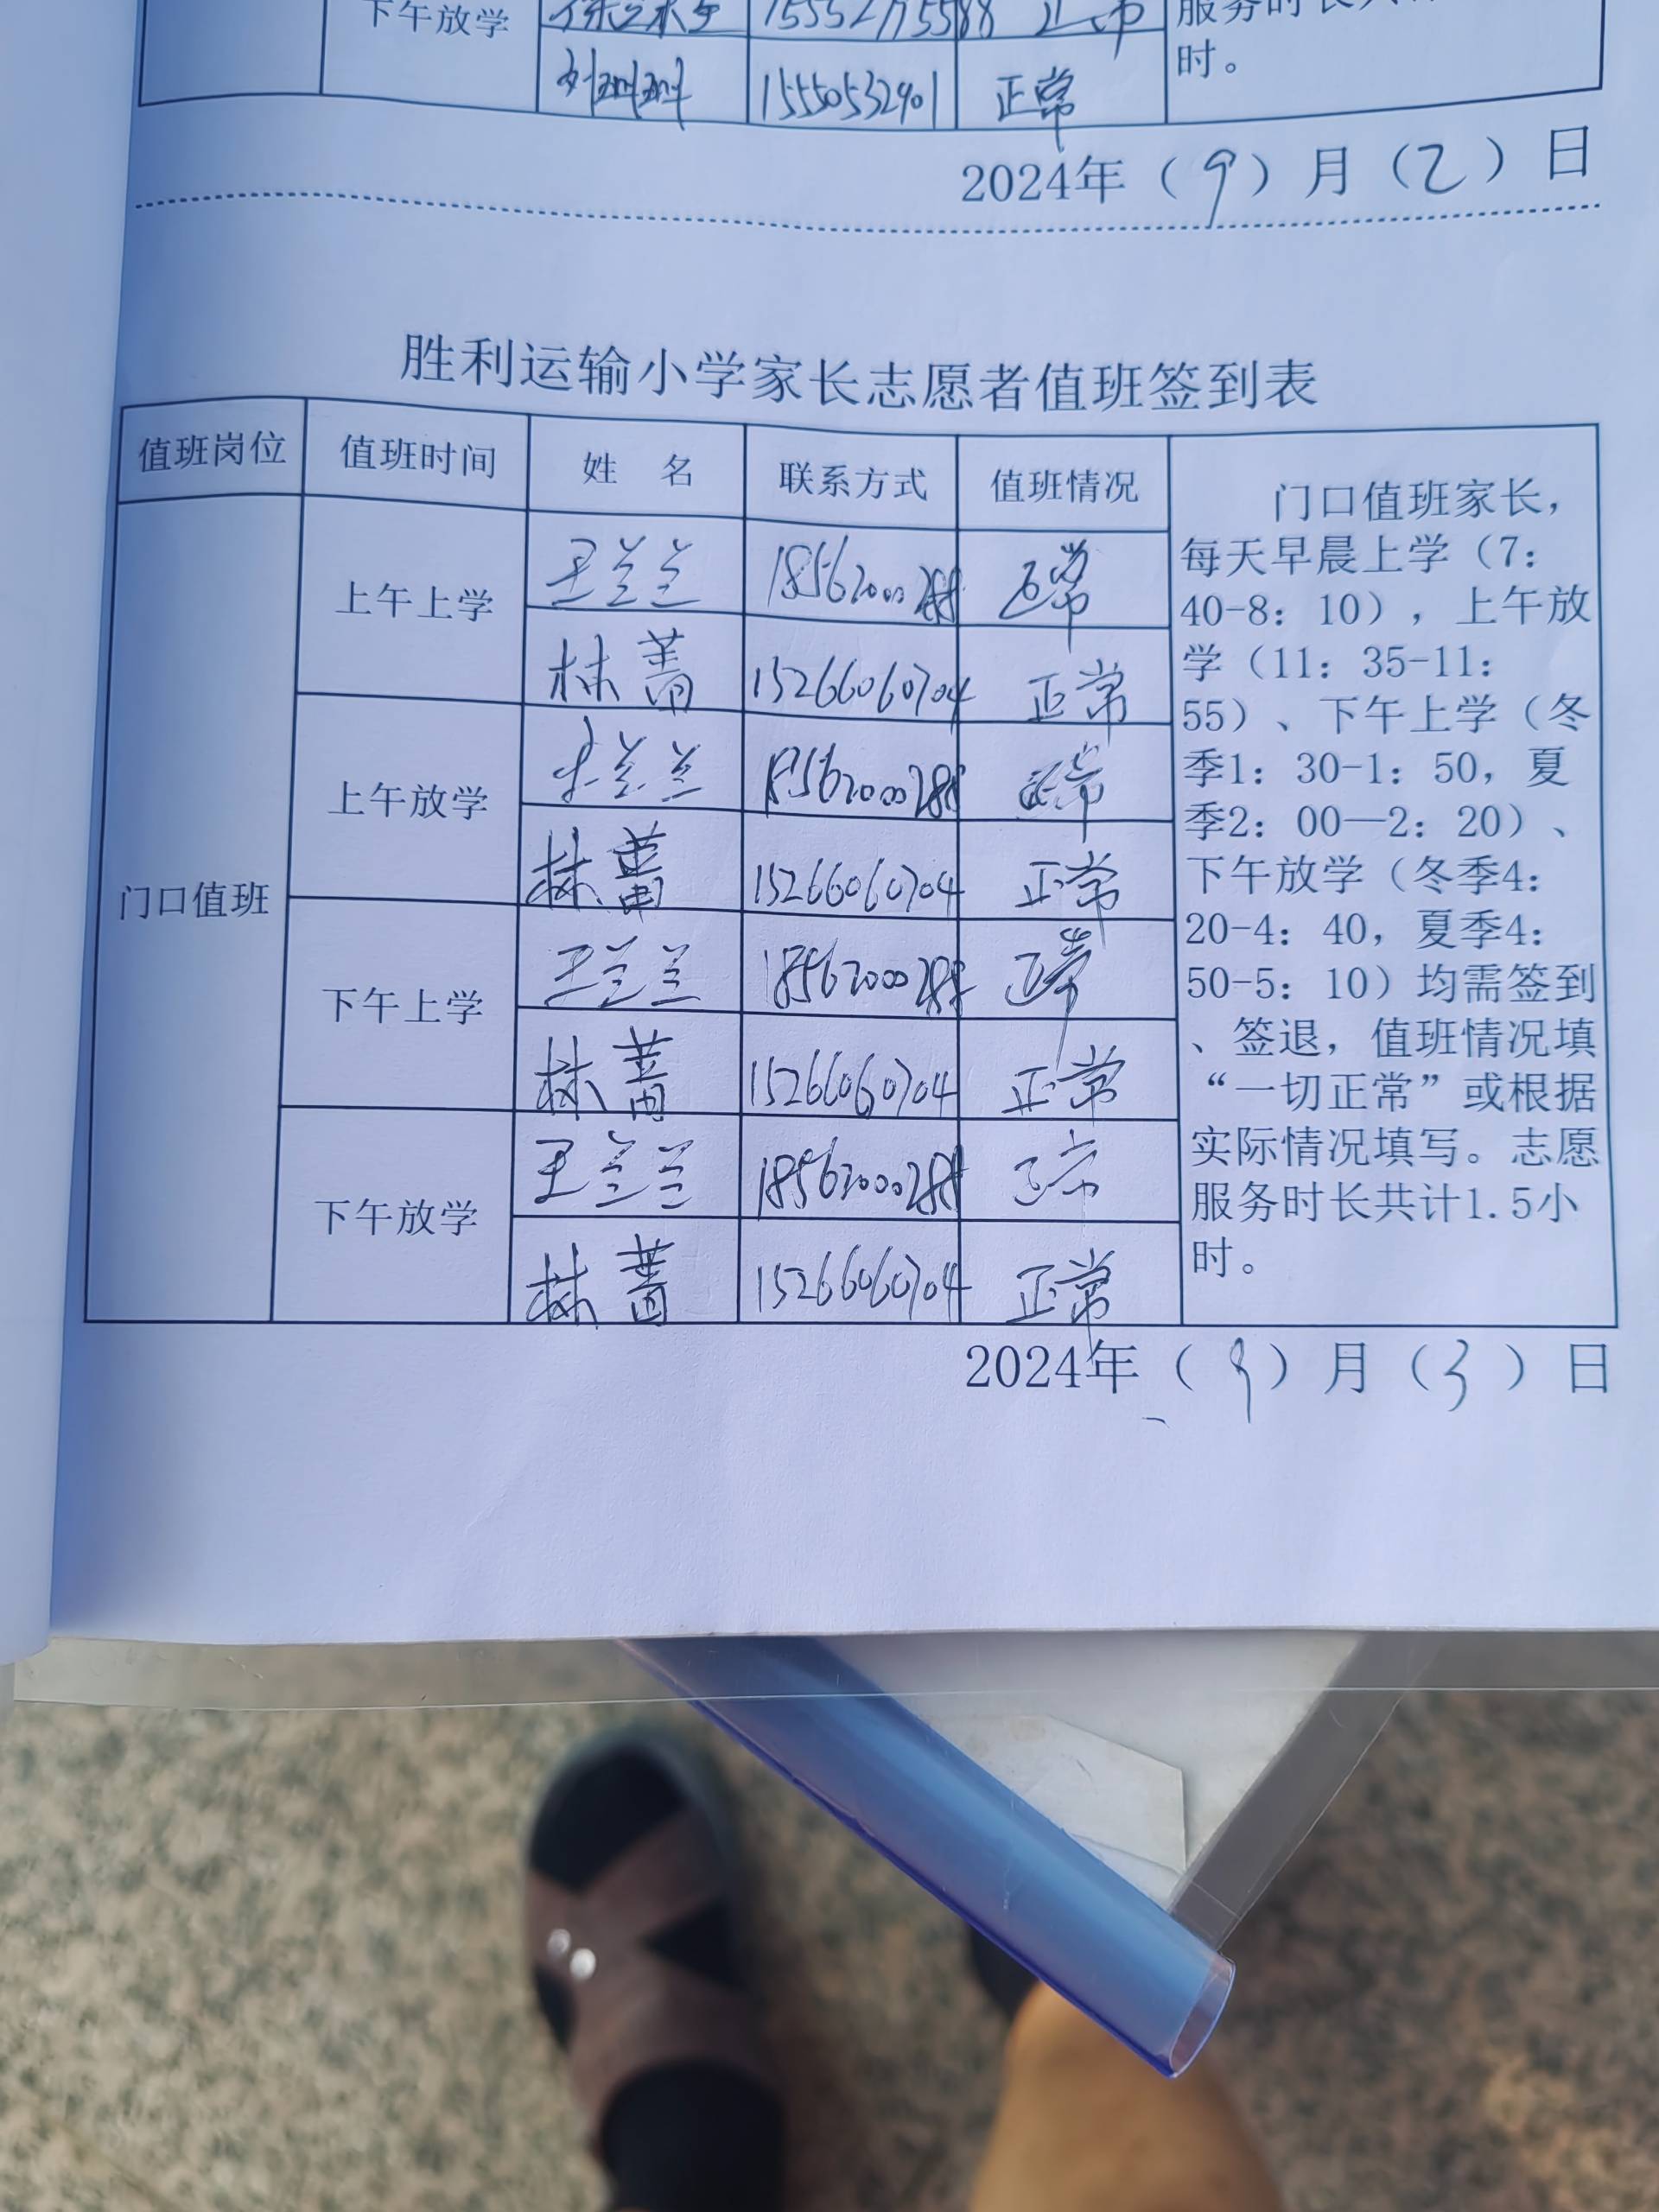 下午放学
正常
服务时长共计
15550532401 正常
时。
2024年（9）月（2）日
胜利运输小学家长志愿者值班签到表
值班岗位 值班时间 姓 名 联系方式 值班情况
门口值班
上午上学
王兰兰 18562000288 正常
林菁 15266060704 正常
上午放学
王兰兰 18562000288 正常
林菁 15266060704 正常
下午上学
王兰兰 18562000288 正常
林菁 15266060704 正常
下午放学
王兰兰 18562000288 正常
林菁 15266060704 正常
门口值班家长，
每天早晨上学（7：
40-8：10），上午放
学（11：35-11：
55）、下午上学（冬
季1：30-1：50，夏
季2：00—2：20）、
下午放学（冬季4：
20-4：40，夏季4：
50-5：10）均需签到
、签退，值班情况填
“一切正常”或根据
实际情况填写。志愿
服务时长共计1.5小
时。
2024年（9）月（3）日